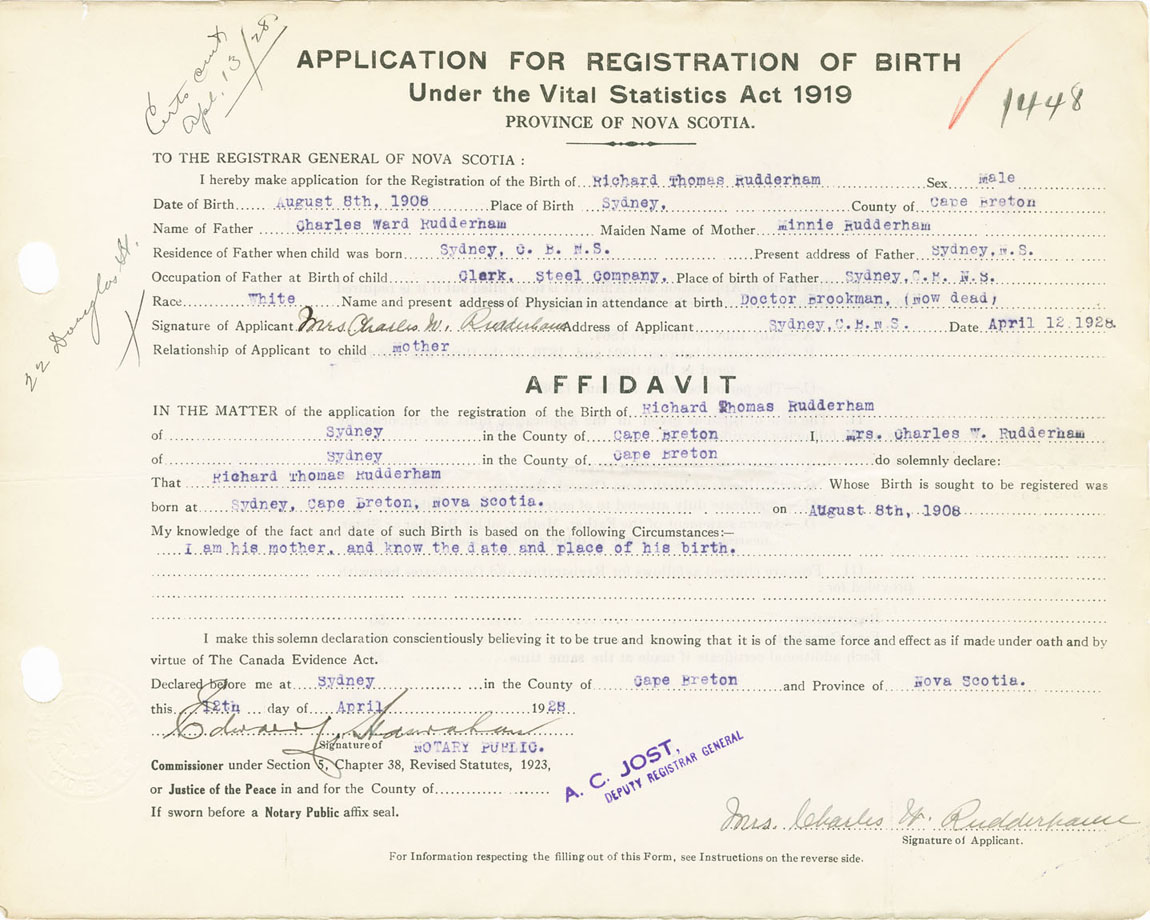 Certs out
Apl. 13/28.
APPLICATION FOR REGISTRATION OF BIRTH
Under the Vital Statistics Act 1919
PROVINCE OF NOVA SCOTIA.
1448
TO THE REGISTRAR GENERAL OF NOVA SCOTIA :
I hereby make application for the Registration of the Birth of Richard Thomas Rudderham Sex Male
Date of Birth August 8th, 1908 Place of Birth Sydney, County of Cape Breton
Name of Father Charles Ward Rudderham Maiden Name of Mother Minnie Rudderham
Residence of Father when child was born Sydney, C. B. N.S. Present address of Father Sydney, N.S.
Occupation of Father at Birth of child Clark, Steel Company, Place of birth of Father Sydney, C.B. N.S.
Race White Name and present address of Physician in attendance at birth Doctor Brookman, (now dead)
Signature of Applicant Mrs Charles W. Rudderham Address of Applicant Sydney, C.B.N.S. Date April 12 1928.
Relationship of Applicant to child mother
22 Douglas St.
AFFIDAVIT
IN THE MATTER of the application for the registration of the Birth of Richard Thomas Rudderham
of Sydney in the County of Cape Breton I, Mrs. Charles W. Rudderham
of Sydney in the County of Cape Breton do solemnly declare:
That Richard Thomas Rudderham Whose Birth is sought to be registered was
born at Sydney, Cape Breton, Nova Scotia. on August 8th, 1908
My knowledge of the fact and date of such Birth is based on the following Circumstances:—
I am his mother, and know the date and place of his birth.
I make this solemn declaration conscientiously believing it to be true and knowing that it is of the same force and effect as if made under oath and by
virtue of The Canada Evidence Act.
Declared before me at Sydney in the County of Cape Breton and Province of Nova Scotia.
this 12th day of April 1928
Edward
Signature of NOTARY PUBLIC.
Commissioner under Section 5, Chapter 38, Revised Statutes, 1923,
or Justice of the Peace in and for the County of
If sworn before a Notary Public affix seal.
A. C. JOST,
DEPUTY REGISTRAR GENERAL
Mrs. Charles W. Rudderham
Signature of Applicant.
For Information respecting the filling out of this Form, see Instructions on the reverse side.